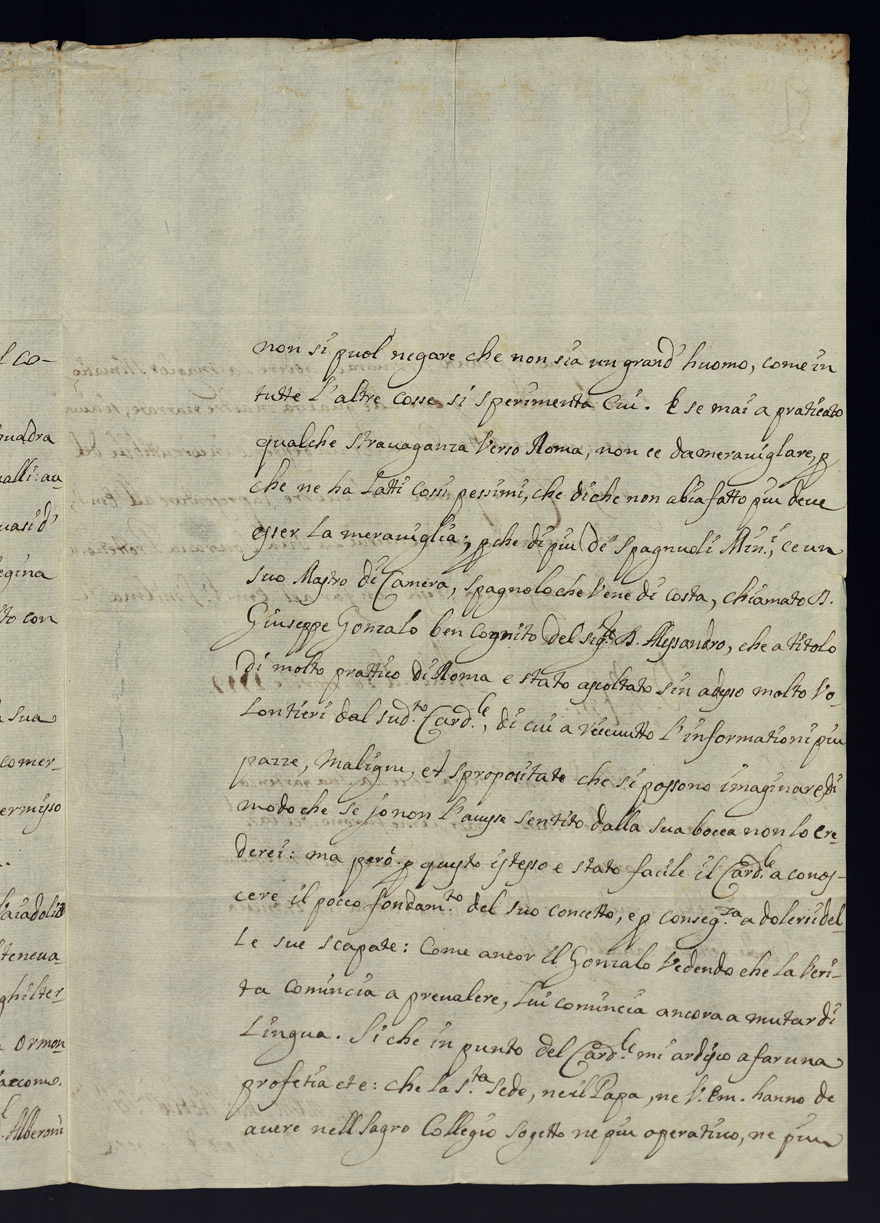 l co-
quadra
valli: au
quasi d'
egina
to con
sua
comer-
ermisso
steneua-
ghilter-
Ormon
Alberoni
non si puol negare che non sia un grand' huomo, come in
tutte l'altre cosse si sperimenta cui. E se mai a praticato
qualche strauaganza verso Roma, non ce da merauiglare, p
che ne ha latti cossi pessimi, che di che non abia fatto piu deue
esser la merauiglia; pche di piu de spagnuoli Min.i, ce un
suo Mastro di Camera, spagnolo che vene di costa, chiamato D.
Giuseppe Gonzalo ben cognito del sig.re D. Alessandro, che a titolo
di molto prattico di Roma e stato ascoltato sin adesso molto vo-
lontieri dal sud.to Card.le, di cui a riceuuto l'informationi piu
pazze, maligne, et spropositate che si possono imaginare, di
modo che se jo non l'auesse sentito dalla sua bocca non lo cre-
derei: ma però p questo istesso e stato facile il Card.le a conos-
cere il poceo fondam.to del suo concetto, e p conseg.za a dolersi del-
le sue scapate: Come ancor il Gonzalo vedendo che la veri-
ta comincia a preualere, lui comincia ancora a mutar di
lingua. Si che in punto del Card.le mi ardisco a far una
profetia et e: che la S.ta Sede, ne il Papa, ne V. Em. hanno de
auere nell Sagro Collegio sogetto ne piu operatiuo, ne piu